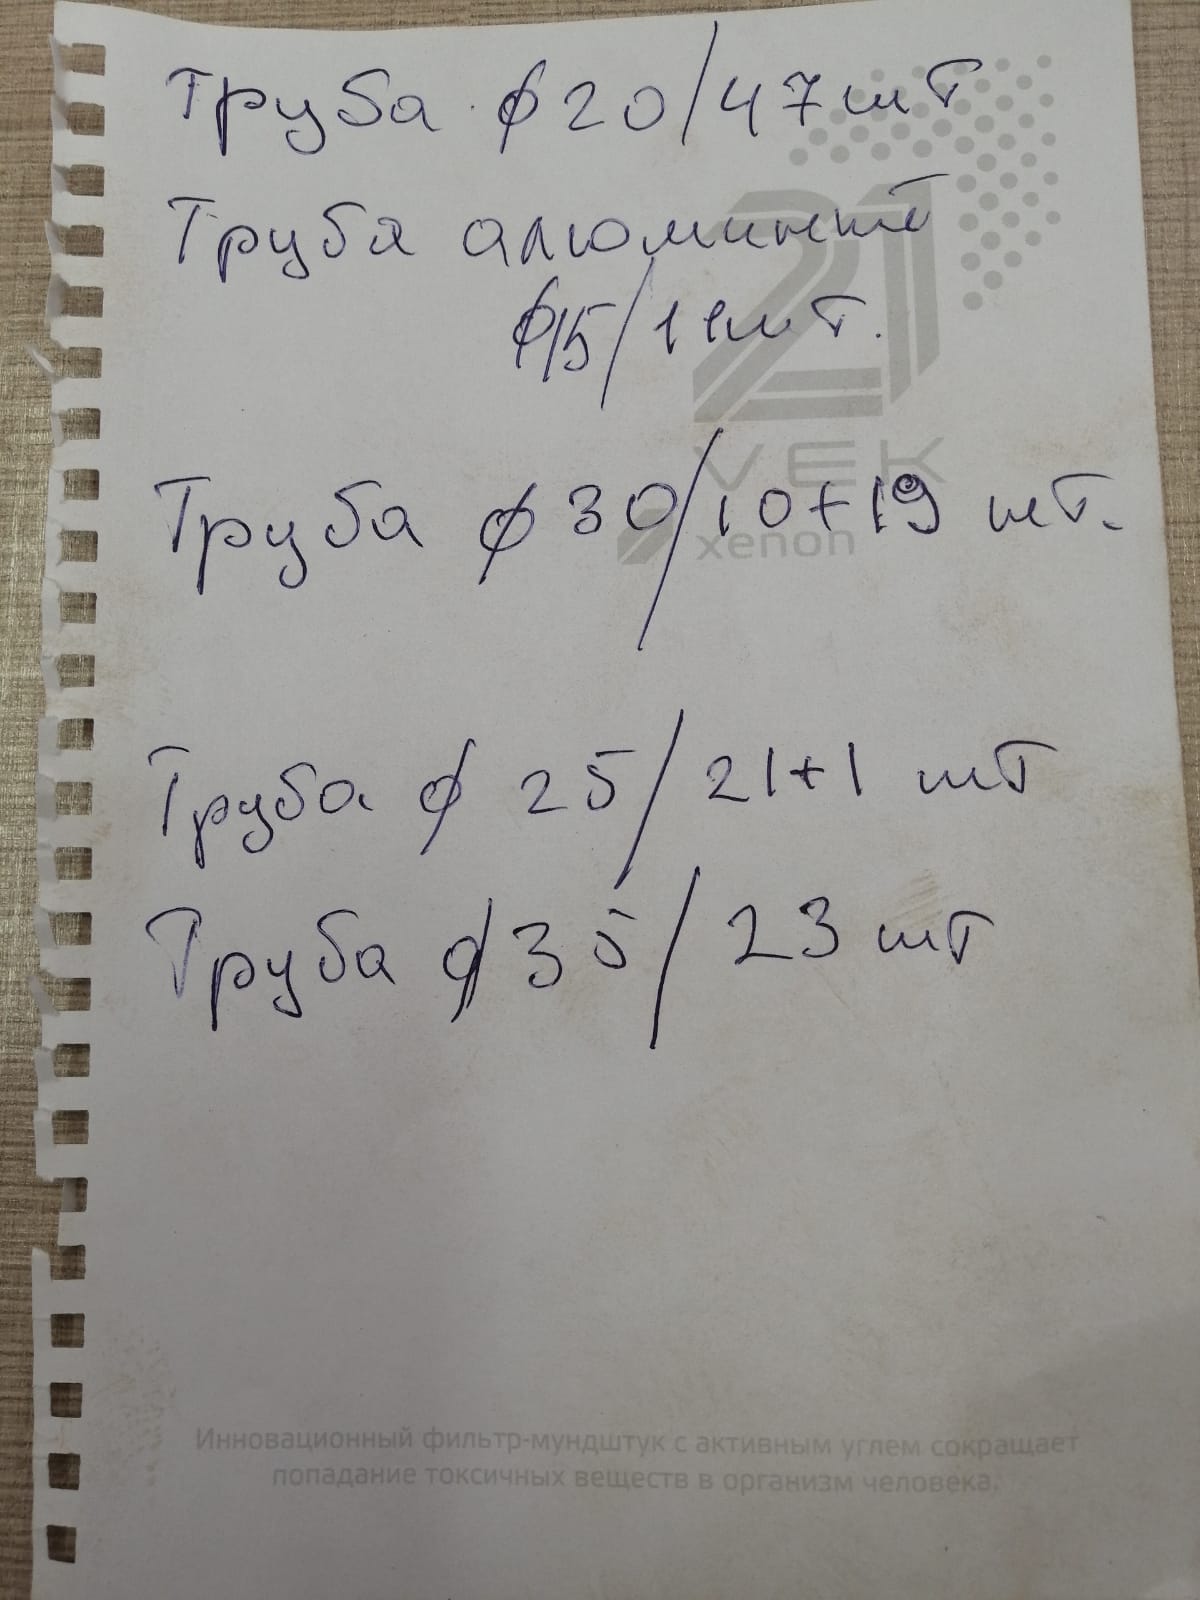 Труба ф20/47шт
21
Труба
ф15/11шт.
VEK
Труба ф30/10+19 шт.
xenon
Труба ф 25/21+1 шт
Труба ф35/23шт
Инновационный фильтр-мундштук с активным углем сокращает
попадание токсичных веществ в организм человека.